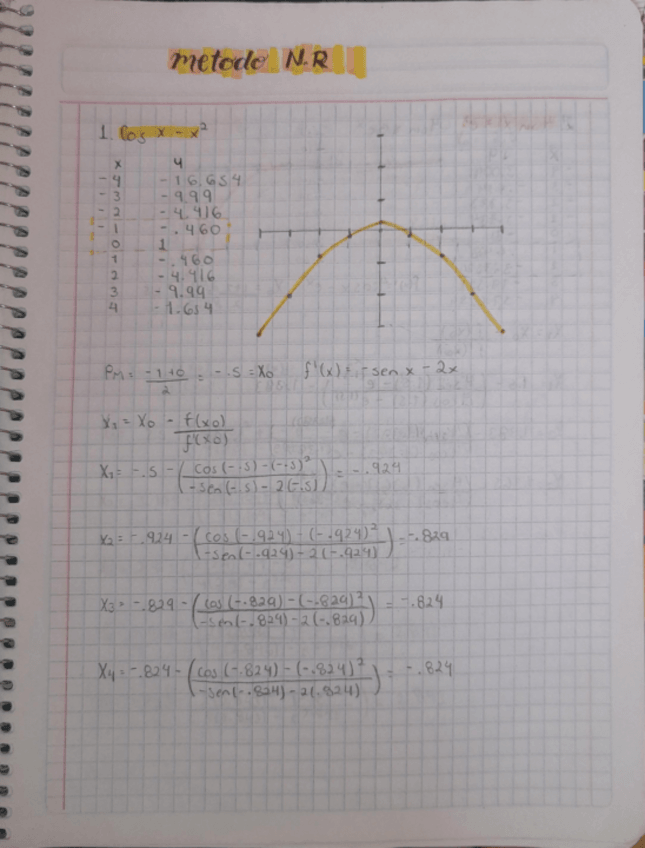 metodo N.R
1. Cos x - x²
x y
-4 -16.654
-3 -9.99
-2 -4.416
-1 -.460
0 1
1 -.460
2 -4.416
3 -9.99
4 -1.654
Pm = -1+0/2 = -.5 = X0 f'(x) = -sen x - 2x
X1 = X0 - f(x0)/f'(x0)
X1 = -.5 - (cos(-.5)-(-.5)²/-sen(-.5)-2(-.5)) = -.924
X2 = -.924 - (cos(-.924)-(-.924)²/-sen(-.924)-2(-.924)) = -.829
X3 = -.829 - (cos(-.829)-(-.829)²/-sen(-.824)-2(-.829)) = -.824
X4 = -.824 - (cos(-.824)-(-.824)²/-sen(-.824)-2(.824)) = -.824